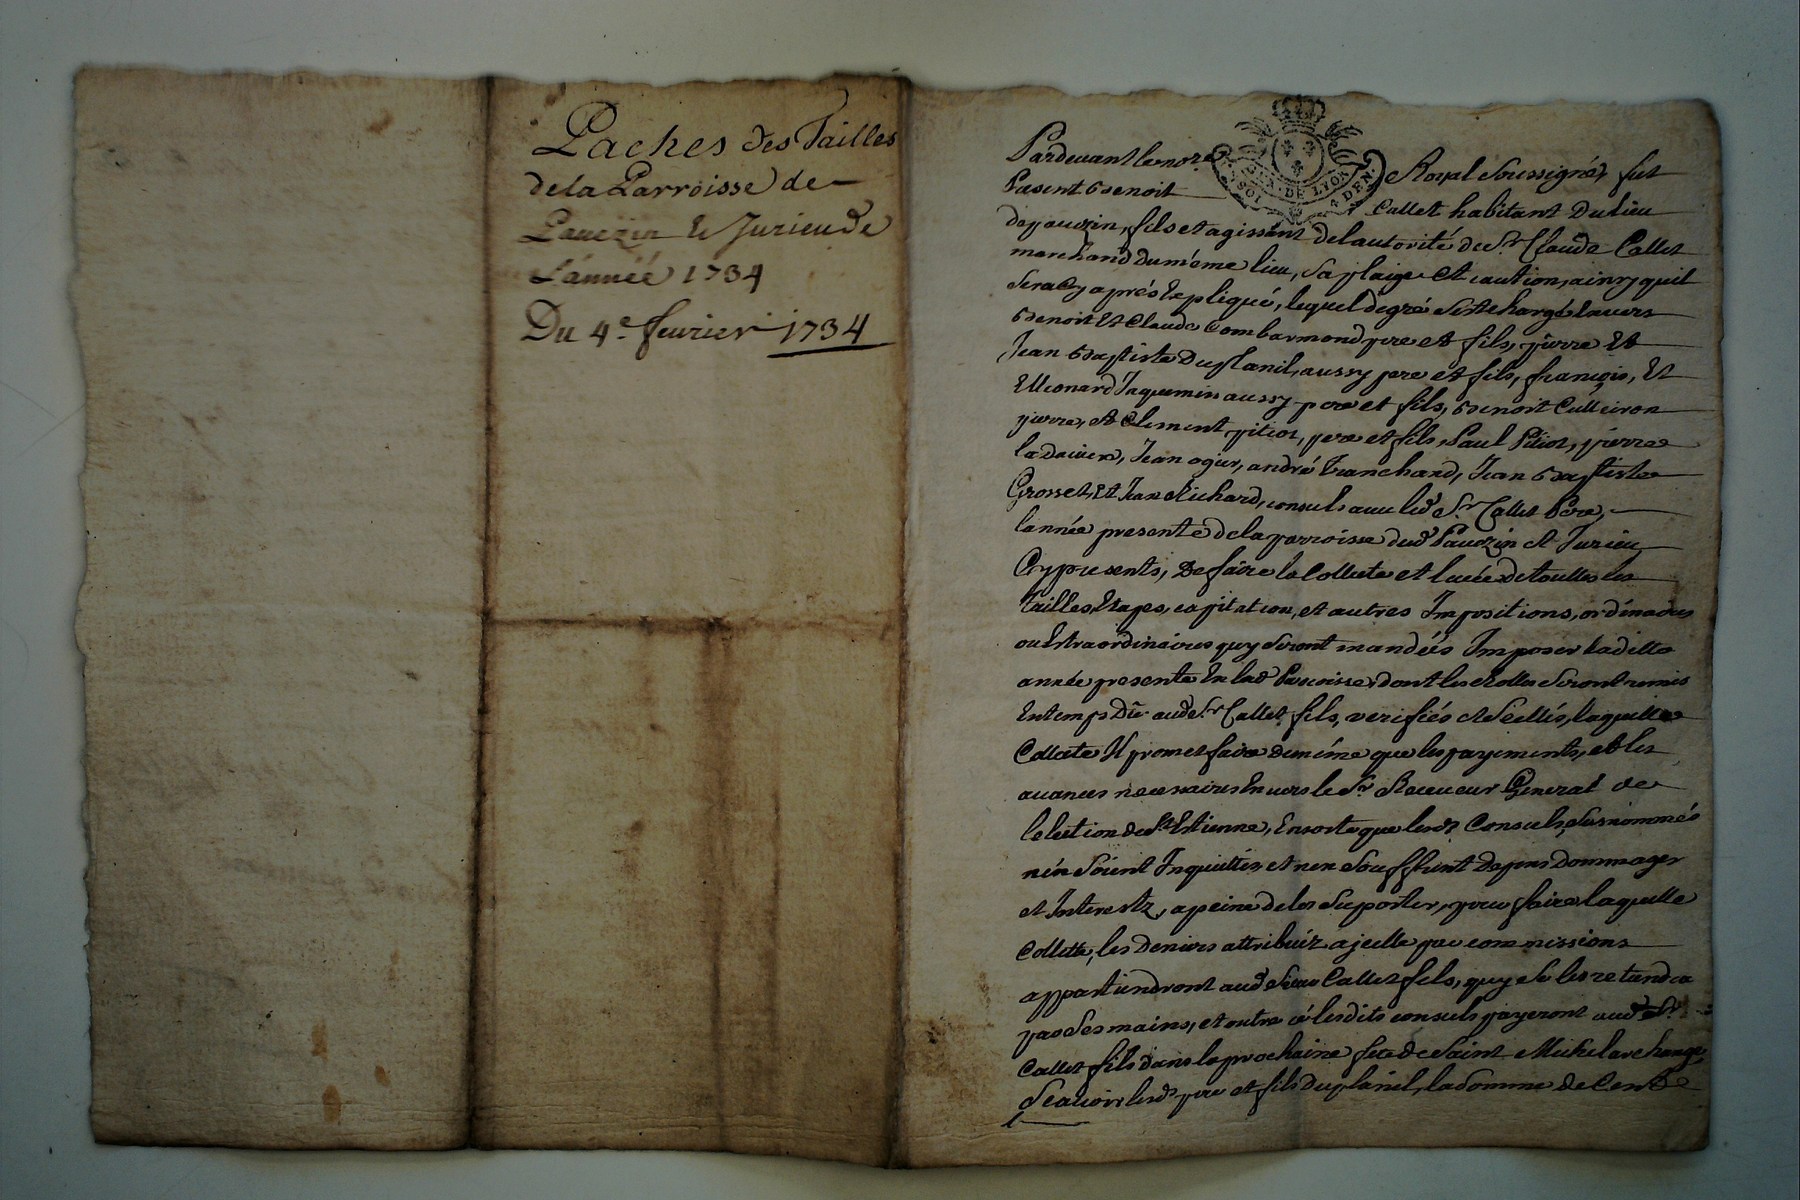 Paches des Tailles
de la Parroisse de
Pauezin et Jurieu de
L'année 1734
Du 4e feurier 1734
Pardeuant le nore Royal Soussigné, fut
Present Benoit Callet habitant Du lieu
de pauezin, fils et agissant de l'autorité de Sr Claude Callet
marchand du méme lieu, sa plaige et caution, ainsy quil
sera Cy aprés Expliqué, lequel de gré s'est chargé Enuers
Benoit Et Claude Combarmond pere et fils, pierre Et
Jean Baptiste Duplanil, aussy pere et fils, françois, Et
Leonard Jaquemin aussy pere et fils, Benoit
pierre, et Clement pitiot, pere et fils, Paul Pitiot, pierre
Jean ogier, andré Tranchard, Jean Baptiste
Grosset, Et Jean Richard, consuls auec led Sr Callet Pere,
lannée presente de la parroisse dud Pauezin et Jurieu
Cy presents, De faire la Collecte et leuée de touttes les
Tailles, Etapes, capitation, et autres Impositions, ordinaires
ou Extraordinaires quy seront mandées Imposer laditte
année presente En lad Parroisse, dont les Rolles seront remis
En temps Du aud Sr Callet fils, verifiés et Scellés, laquelle
Collecte Il promet faire de méme que les payements, et les
auances necessaires Enuers le Sr Receueur General de
l'election de St Estienne, En sorte que lesd Consuls susnommés
n'en soient Inquiettés, et n'en souffrent depens Dommages
et Interestz, a peine de les suporter, pour faire laquelle
Collette, les Deniers attribuéz a jcelle par commissions
appartiendront aud sieur Callet fils, quy se les retiendra
par ses mains, et outre ce lesdits consuls payeront aud Sr
Callet fils dans la prochaine feste de Saint Michel archange
Scauoir lesd pere et fils Duplanil, la Somme de Cent